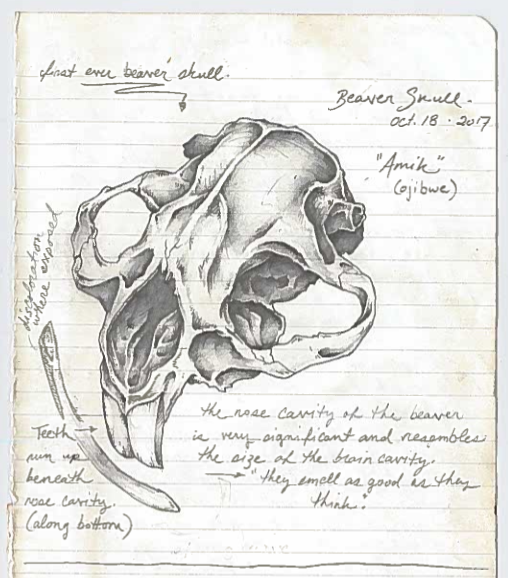 first ever beaver skull.
Beaver Skull.
Oct. 18 · 2017
"Amik"
(ojibwe)
discoloration
where exposed
the nose cavity of the beaver
is very significant and resembles
the size of the brain cavity.
→ "they smell as good as they
think."
Teeth →
run up
beneath
nose cavity.
(along bottom)